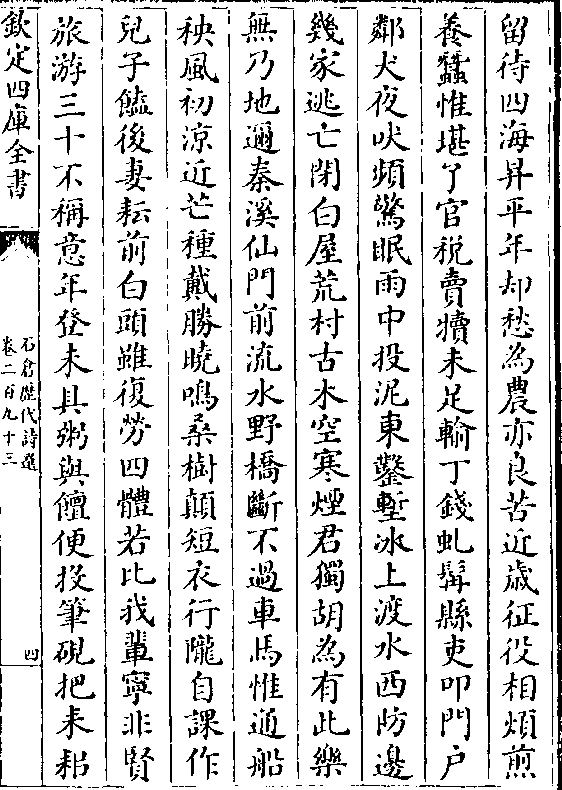 留待四海昇平年却愁為農亦良苦近歲征役相煩煎
養蠶惟堪了官税賣犢未足輸丁錢虬髯縣吏叩門户
鄰犬夜吠頻驚眠雨中投泥東鑿塹冰上渡水西防邊
幾家逃亡閉白屋荒村古木空寒煙君獨胡為有此樂
無乃地邇秦溪仙門前流水野橋斷不過車馬惟通船
秧風初凉近芒種戴勝曉鳴桑樹顛短衣行隴自課作
兒子饁後妻耘前白頭雖復勞四體若比我輩寧非賢
旅游三十不稱意年登未具粥與饘便投筆硯把耒耜
欽定四庫全書
石倉歷代詩選
卷二百九十三
四